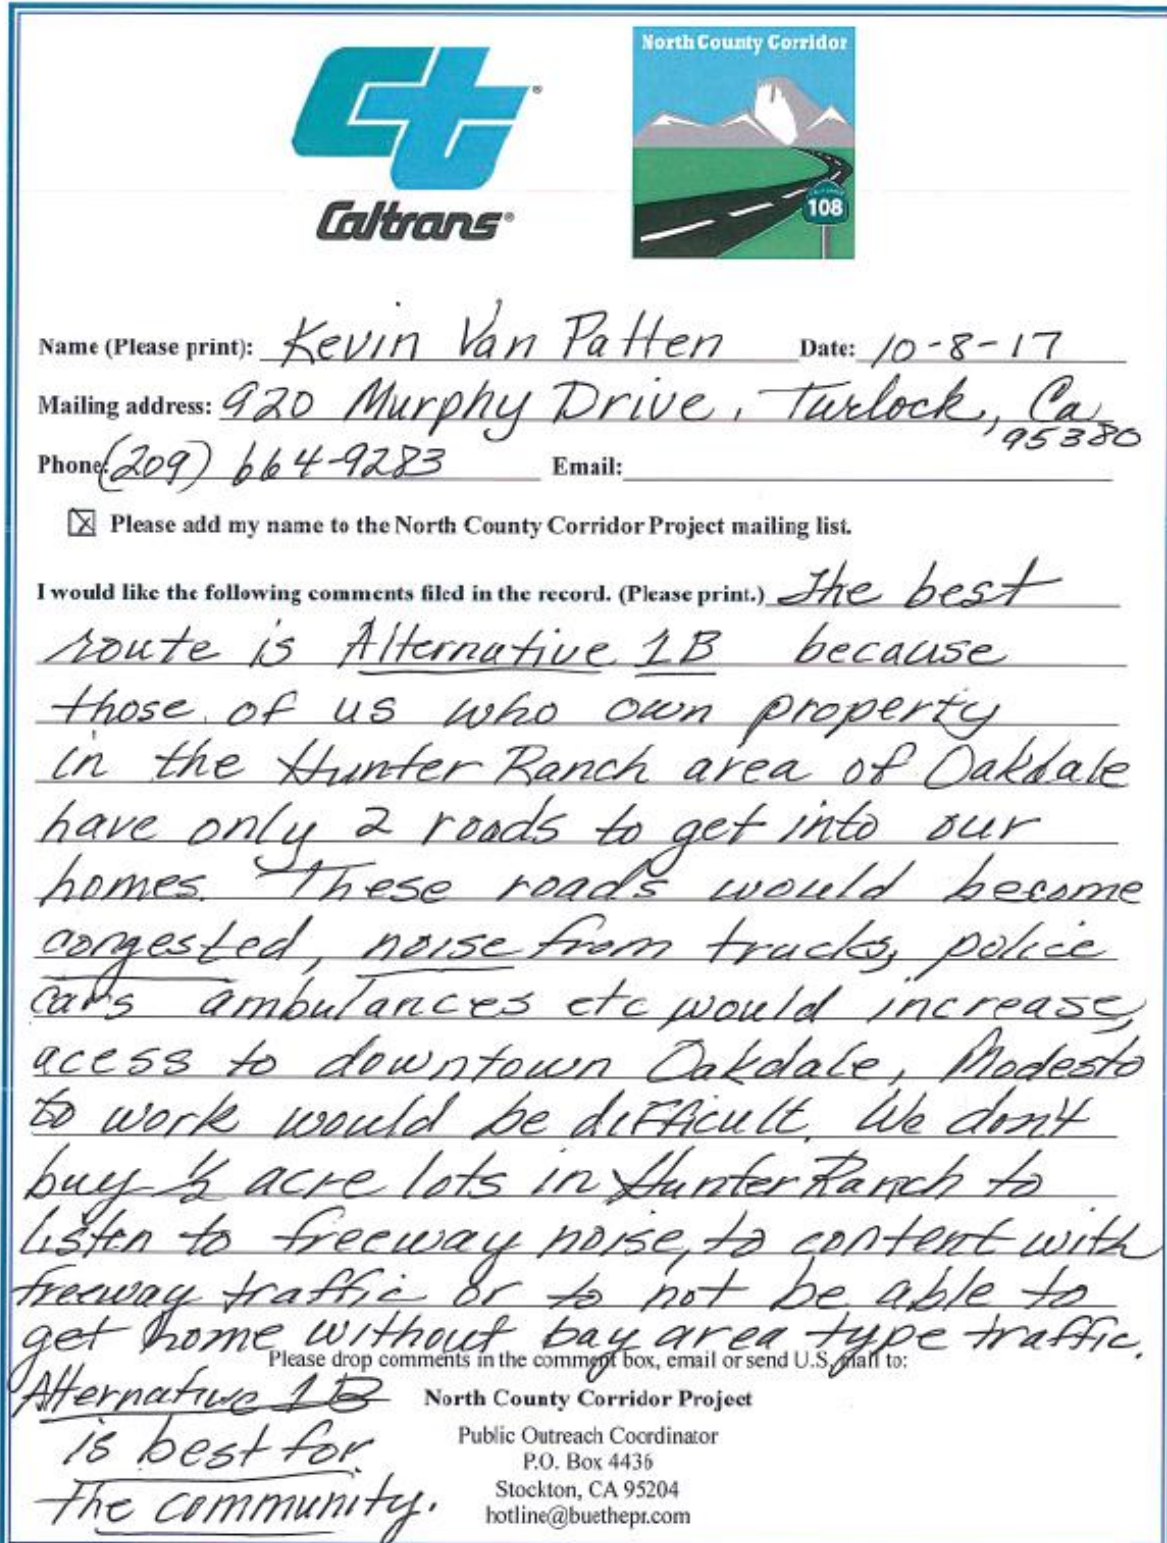 North County Corridor
CALIFORNIA
108
Caltrans®
Name (Please print): Kevin Van Patten Date: 10-8-17
Mailing address: 920 Murphy Drive, Turlock, Ca
95380
Phone: (209) 664-9283 Email:
Please add my name to the North County Corridor Project mailing list.
I would like the following comments filed in the record. (Please print.) The best
route is Alternative 1B because
those of us who own property
in the Hunter Ranch area of Oakdale
have only 2 roads to get into our
homes. These roads would become
congested, noise from trucks, police
cars ambulances etc would increase,
acess to downtown Oakdale, Modesto
to work would be difficult. We don't
buy ½ acre lots in Hunter Ranch to
listen to freeway noise, to content with
freeway traffic or to not be able to
get home without bay area type traffic.
Please drop comments in the comment box, email or send U.S. mail to:
Alternative 1B
is best for
the community.
North County Corridor Project
Public Outreach Coordinator
P.O. Box 4436
Stockton, CA 95204
hotline@buethepr.com